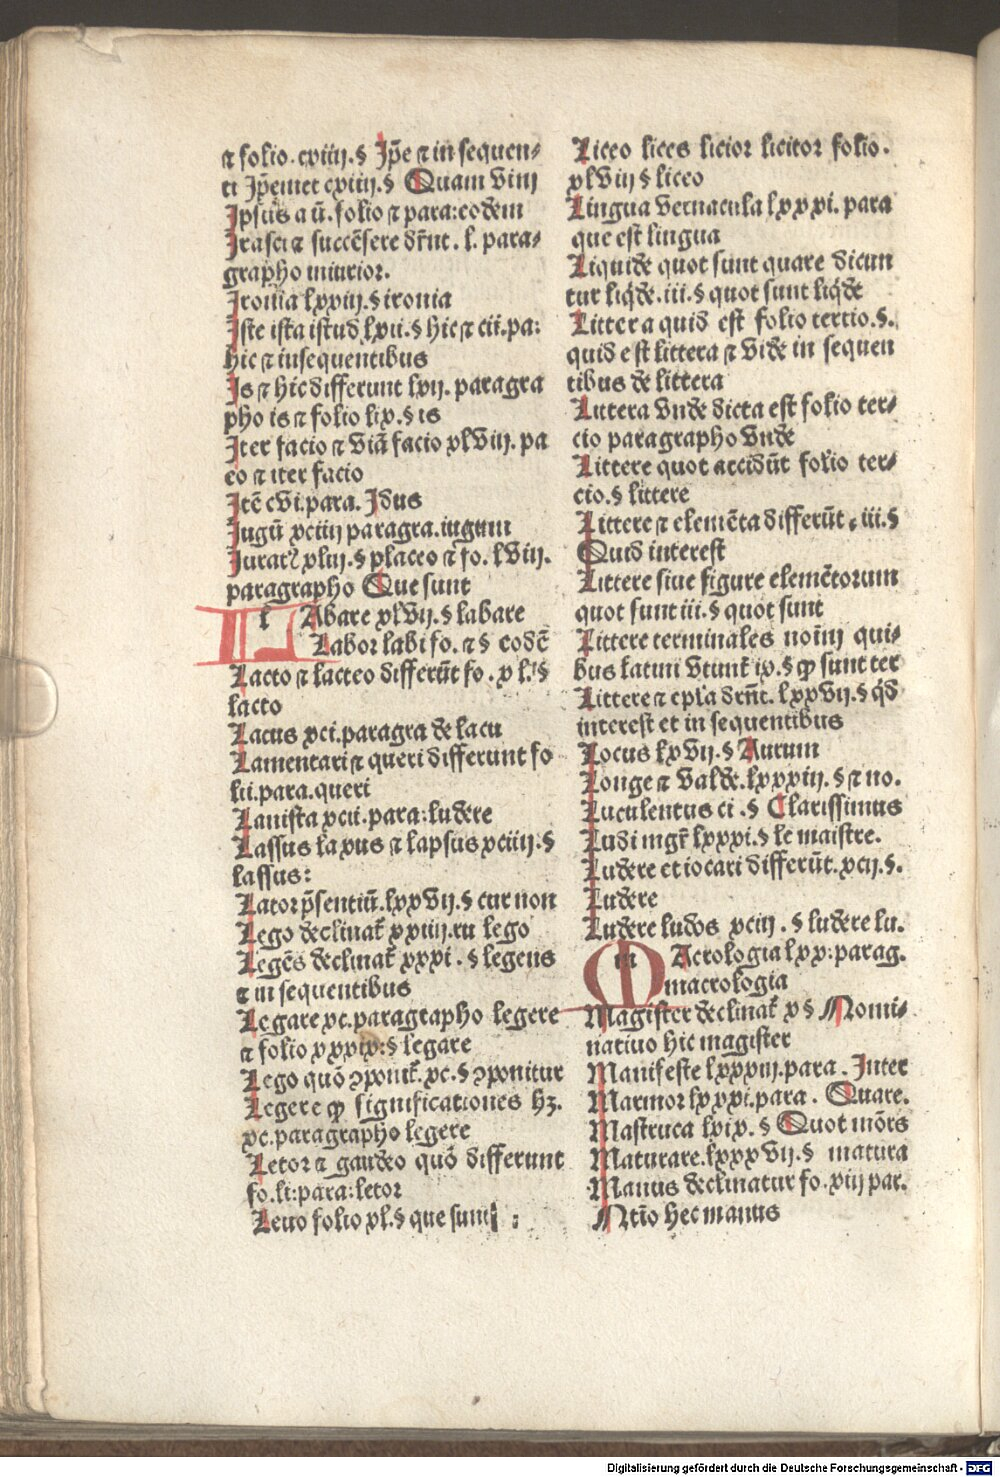 ⁊ folio. cxiiij. § Jp̄e ⁊ in sequen⸗
ti Jp̄emet cxiiij. § Quam vim
Jpsius a ū. folio ⁊ para: eodem
Jrasci ⁊ succēsere dr̄nt. l. para⸗
grapho iniurior.
Jronia lxxiij. § ironia
Jste ista istud lxii. § hic ⁊ cii. pa:
hic ⁊ insequentibus
Js ⁊ hic differunt lxij. paragra
pho is ⁊ folio lix. § is
Jter facio ⁊ viā facio xlviij. pa
eo ⁊ iter facio
Jtē cvi. para. Jdus
Jugū xciiij paragra. iugum
Juratꝰ xliij. § placeo ⁊ fo. lviij.
paragrapho Que sunt
l LAbare xlvij. § labare
Labor labi fo. ⁊ § eodē
Lacto ⁊ lacteo differūt fo. xl. §
lacto
Lacus xci. paragra de lacu
Lamentari ⁊ queri differunt fo
lii. para. queri
Lanista xcii. para: ludere
Lassus laxus ⁊ lapsus xciiij. §
lassus:
Lator p̄sentiū. lxxvij. § cur non
Lego declinat̄ xxiiij. ru lego
Legēs declinat̄ xxxi. § legens
⁊ in sequentibus
Legare xc. paragrapho legere
⁊ folio xxxix: § legare
Lego quō ꝯponit̄. xc. § ꝯponitur
Legere ꝙ significationes hꝫ.
xc. paragrapho legere
Letor ⁊ gaudeo quō differunt
fo. li: para: letor
Leuo folio xl. § que sunt :
Liceo lices licior licitor folio.
xlviij § liceo
Lingua vernacula lxxxi. para
que est lingua
Liquide quot sunt quare dicun
tur liq̄de. iii. § quot sunt liq̄de
Littera quid est folio tertio. §.
quid est littera ⁊ vide in sequen
tibus de littera
Littera vnde dicta est folio ter⸗
cio paragrapho vnde
Littere quot accidūt folio ter⸗
cio. § littere
Littere ⁊ elemēta differūt. iii. §
Quid interest
Littere siue figure elemētorum
quot sunt iii. § quot sunt
Littere terminales noīm qui⸗
bus latini vtunt̄ ix. § ꝙ sunt ter
Littere ⁊ epl̄a dr̄nt. lxxvij. § q̄d
interest et in sequentibus
Locus lxvij. § Aurum
Longe ⁊ valde. lxxxiij. § ⁊ no.
Luculentus ci. § Clarissimus
Ludi mgr̄ lxxxi. § le maistre.
Ludere et iocari differūt. xcij. §.
Ludere
Ludere ludos xciij. § ludere lu.
m MAcrologia lxx: parag.
macrologia
Magister declinat̄ x § Nomi⸗
natiuo hic magister
Manifeste lxxxiij. para. Jnter
Marmor lxxxi. para. Quare.
Mastruca lxix. § Quot mōrs
Maturare. lxxxvij. § matura
Manus declinatur fo. xiij par.
Ntīo hec manus
Digitalisierung gefördert durch die Deutsche Forschungsgemeinschaft - DFG